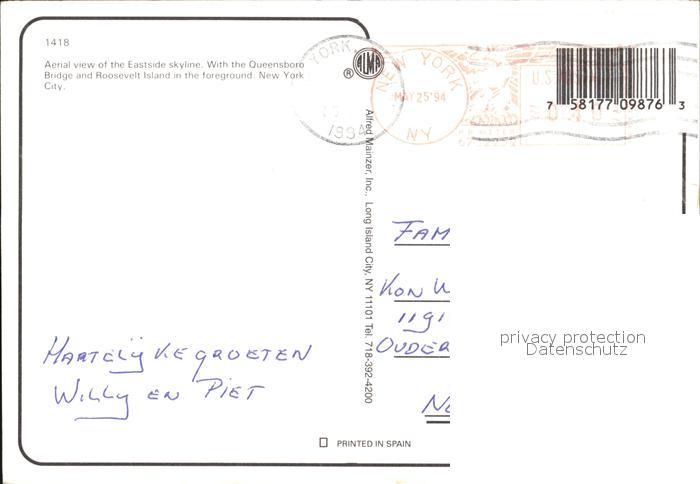 1418
Aerial view of the Eastside skyline. With the Queensboro
Bridge and Roosevelt Island in the foreground. New York
City.
YORK,
1994
ALMA
®
NEW YORK
MAY 25'94
NY
U.S.
7 58177 09876 3
Alfred Mainzer, Inc., Long Island City, NY 11101 Tel. 718-392-4200
FAM
KON W
1191
OUDER
HARTELIJKE GROETEN
WILLY EN PIET
privacy protection
Datenschutz
PRINTED IN SPAIN